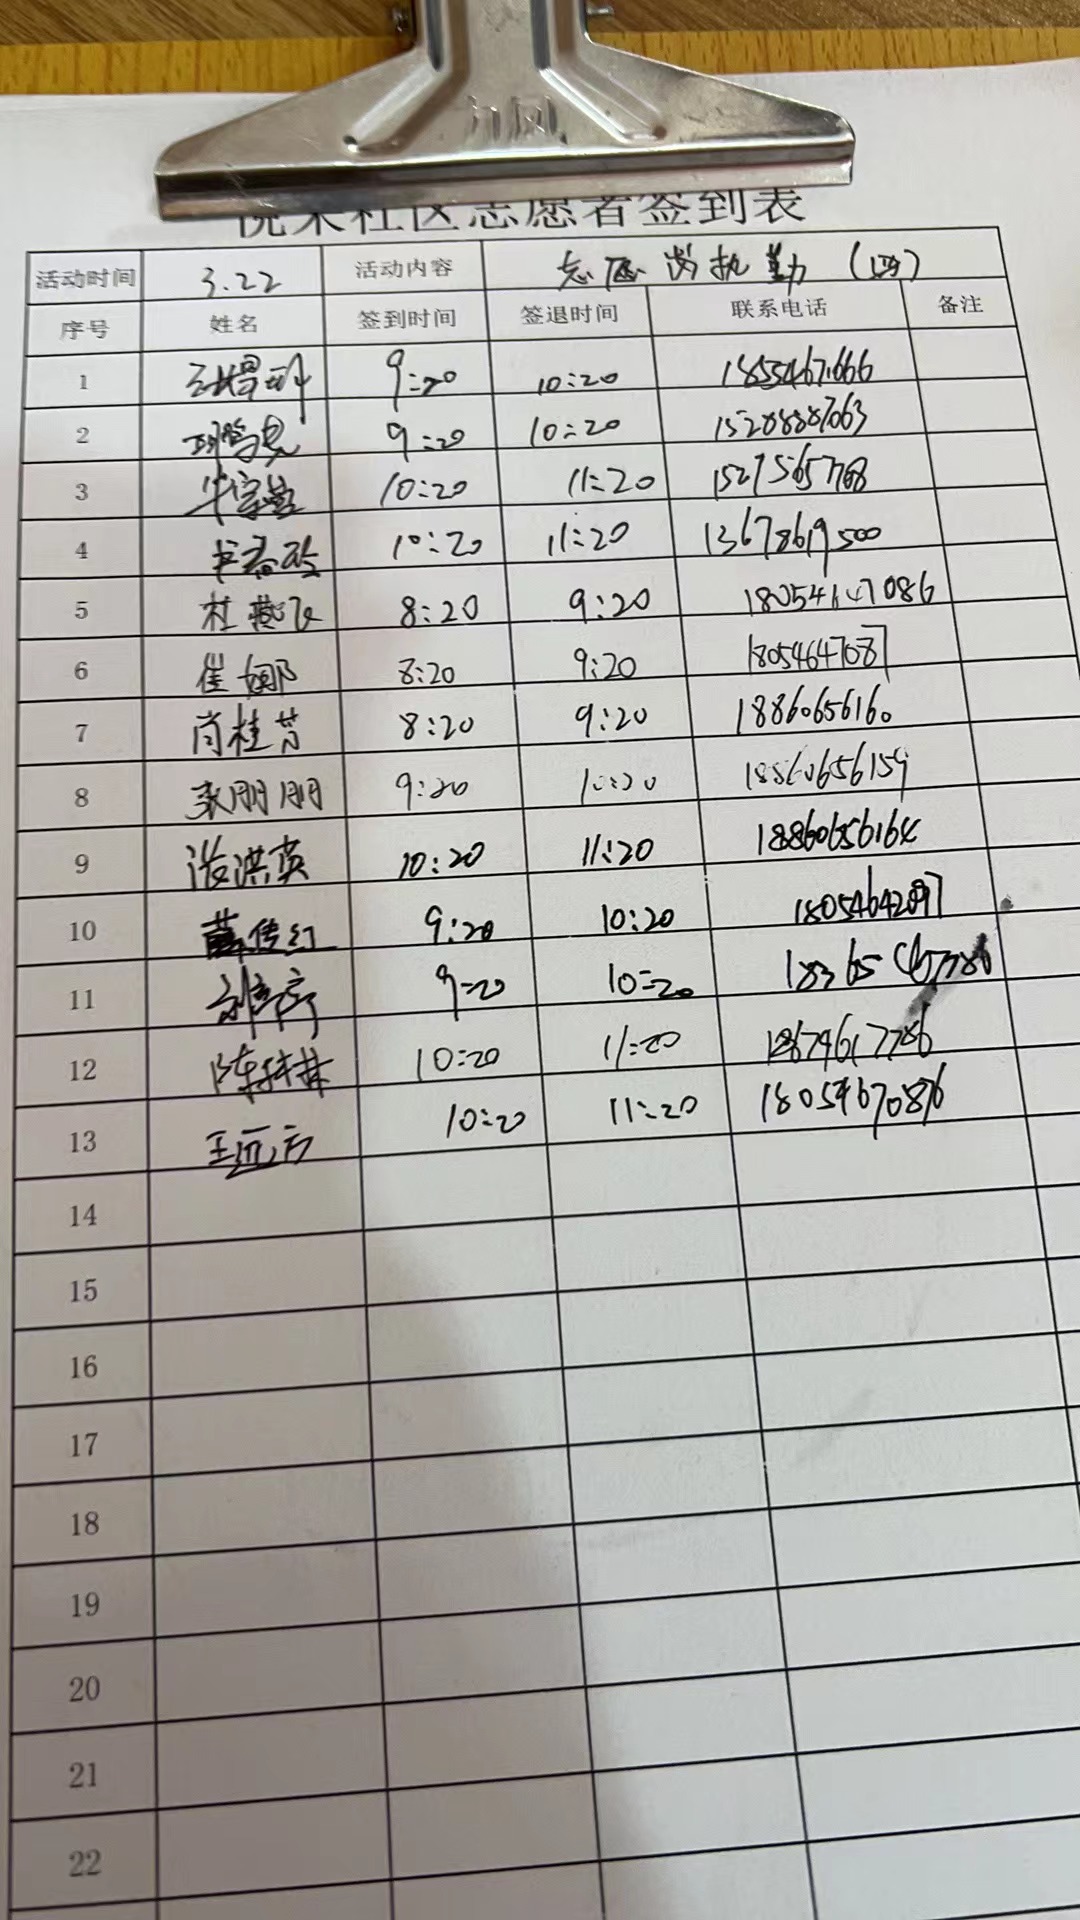 社区志愿者签到表
活动时间 3.22 活动内容 志愿岗执勤（四）
序号 姓名 签到时间 签退时间 联系电话 备注
1 9:20 10:20 18554671666
2 9:20 10:20 15288887063
3 10:20 11:20 15275657768
4 10:20 11:20 13678619500
5 杜燕飞 8:20 9:20 18054647086
6 崔娜 8:20 9:20 18054647087
7 肖桂芳 8:20 9:20 18860656160
8 朋朋 9:20 10:20 18860656159
9 洪英 10:20 11:20 18860656164
10 薛传红 9:20 10:20 18054642897
11 9:20 10:20
12 陈 林 10:20 11:20
13 王远方 10:20 11:20 18054670876
14
15
16
17
18
19
20
21
22